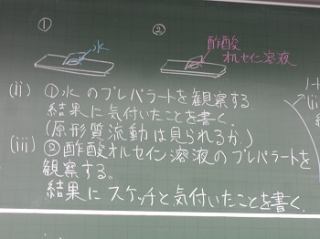 ① ②
水 酢酸
オルセイン溶液
(ii) ①水のプレパラートを観察する
結果に気付いたことを書く.
(原形質流動は見られるか)
(iii) ②酢酸オルセイン溶液のプレパラートを
観察する。
結果にスケッチと気付いたことを書く.